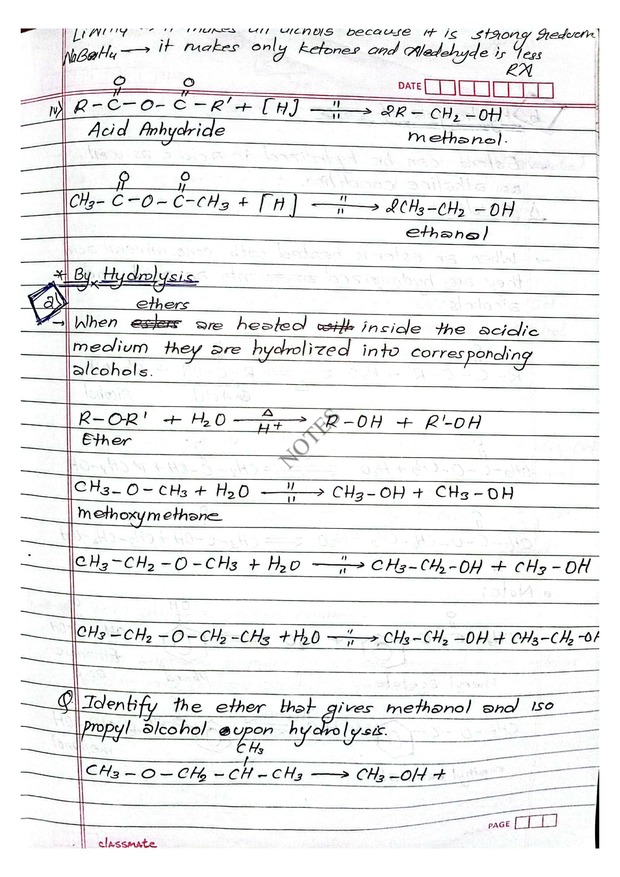 LiAlH4 → it makes all alcohols because it is strong
NaBH4 → it makes only ketones and Aledehyde is less
RXⁿ
DATE
iv) R-C(=O)-O-C(=O)-R' + [H] —"→ 2R-CH2-OH
Acid Anhydride methanol.
CH3-C(=O)-O-C(=O)-CH3 + [H] —"→ 2CH3-CH2-OH
ethanol
* By Hydrolysis
a) ethers
→ When esters are heated with inside the acidic
medium they are hydrolized into corresponding
alcohols.
R-O-R' + H2O —Δ/H+→ R-OH + R'-OH
Ether
NOTES
CH3-O-CH3 + H2O —"→ CH3-OH + CH3-OH
methoxymethane
CH3-CH2-O-CH3 + H2O —"→ CH3-CH2-OH + CH3-OH
CH3-CH2-O-CH2-CH3 + H2O —"→ CH3-CH2-OH + CH3-CH2-OH
Q Identify the ether that gives methanol and iso
propyl alcohol upon hydrolysis.
CH3
CH3-O-CH2-CH-CH3 → CH3-OH +
PAGE
classmate